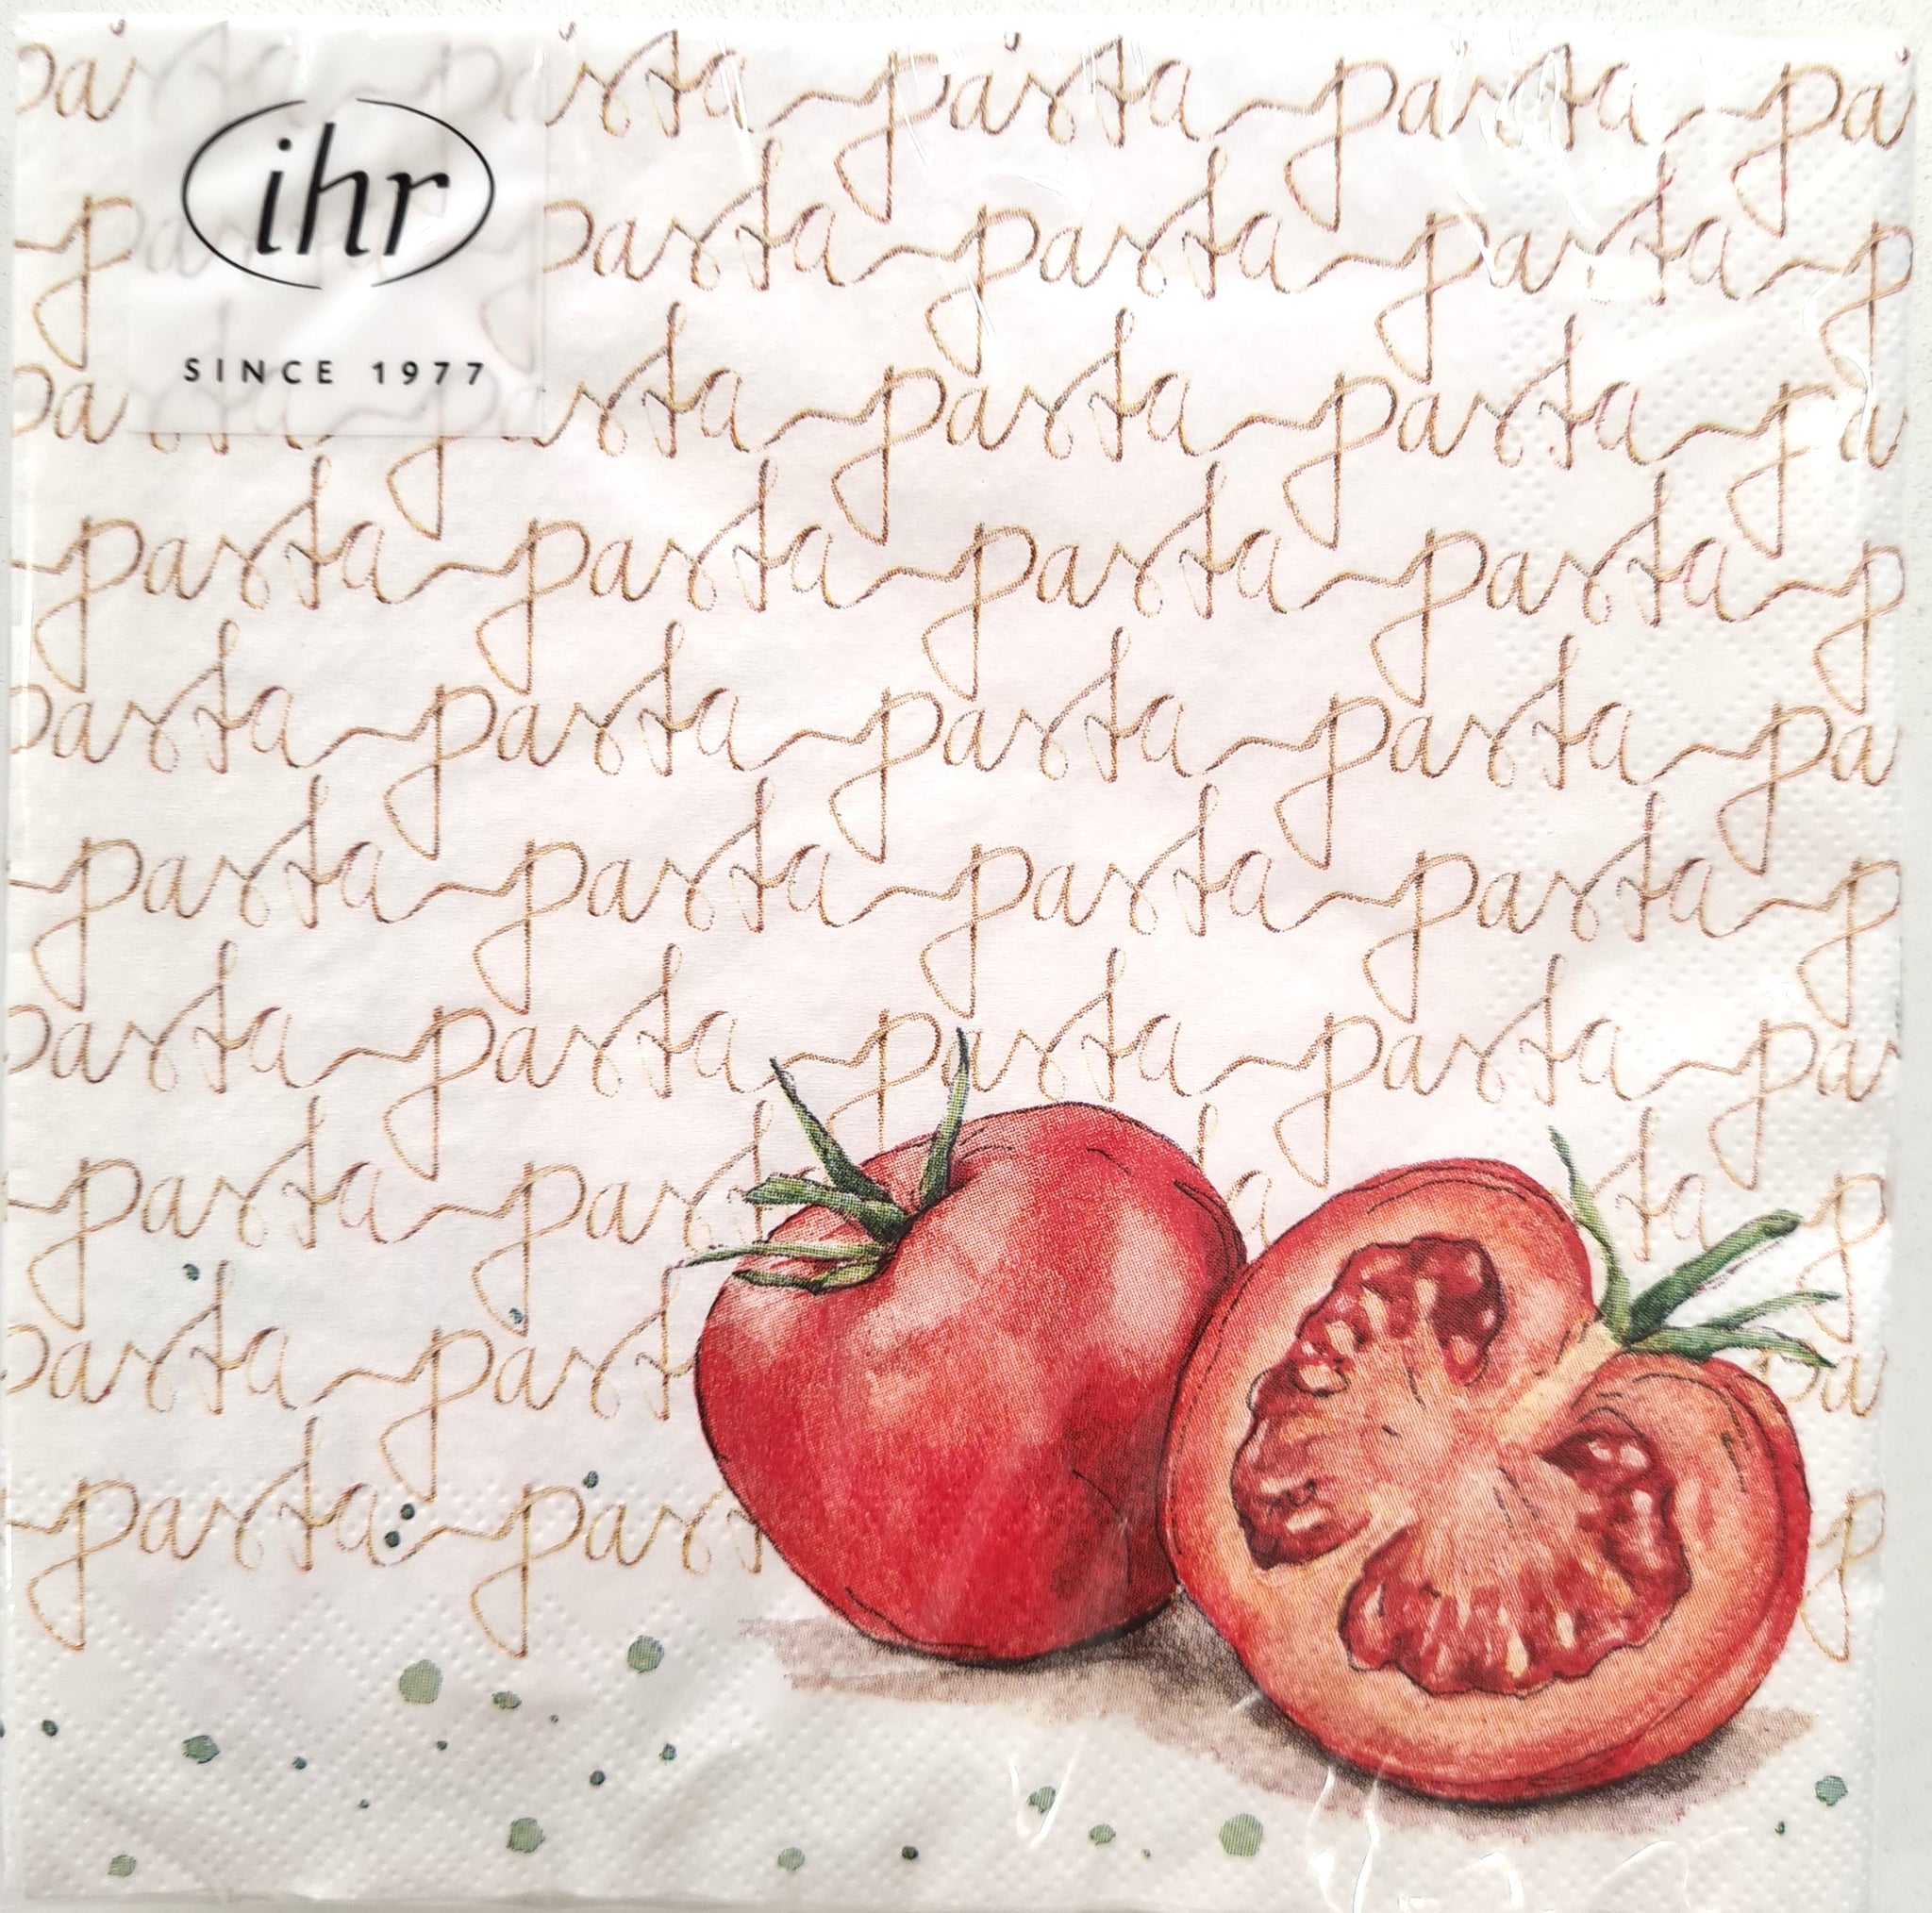 ihr
SINCE 1977
pasta pasta pasta pasta pa
pasta pasta pasta pasta p
pasta pasta pasta pasta pa
pasta pasta pasta pasta p
pasta pasta pasta pasta pa
pasta pasta pasta pasta p
pasta pasta pasta pasta pa
pasta pasta a ta p
pasta past pa
pasta pas p